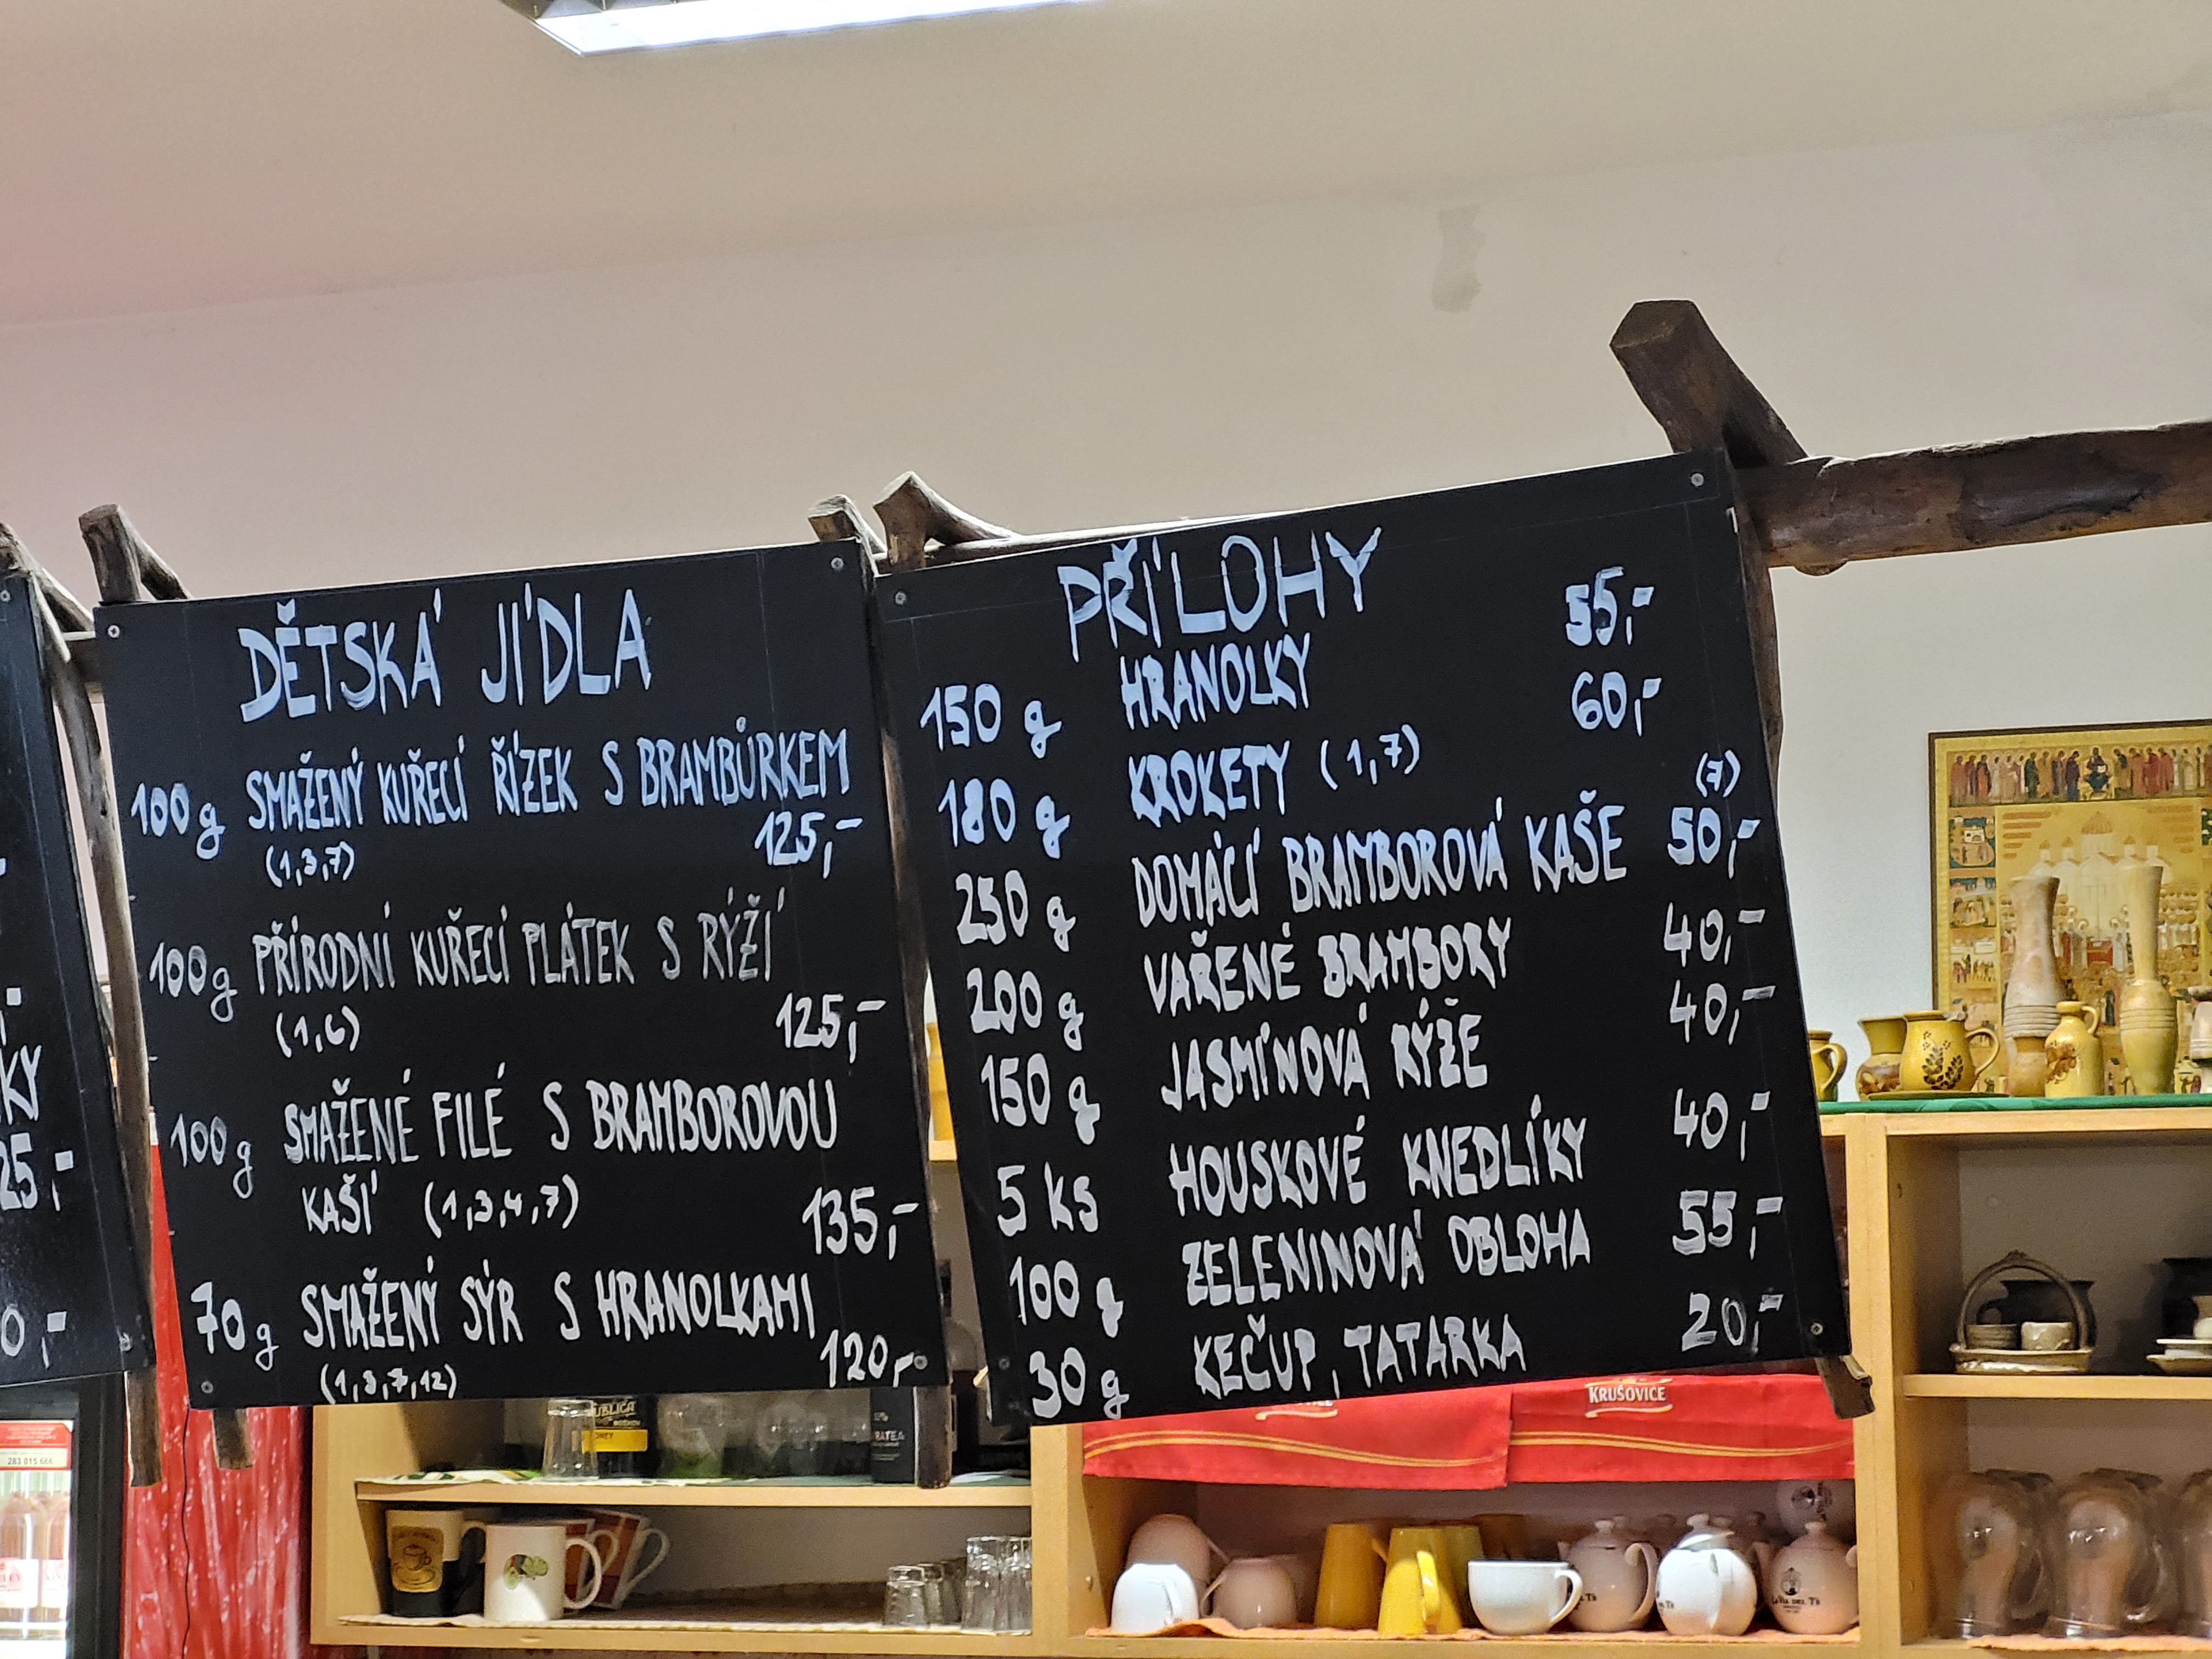 KY
25,-
0,-
DĚTSKÁ JÍDLA
100g SMAŽENÝ KUŘECÍ ŘÍZEK S BRAMBŮRKEM
(1,3,7) 125,-
100g PŘÍRODNÍ KUŘECÍ PLÁTEK S RÝŽÍ
(1,6) 125,-
100g SMAŽENÉ FILÉ S BRAMBOROVOU
KAŠÍ (1,3,4,7) 135,-
70g SMAŽENÝ SÝR S HRANOLKAMI
(1,3,7,12) 120,-
PŘÍLOHY
150 g HRANOLKY 55,-
180 g KROKETY (1,7) 60,-
250 g DOMÁCÍ BRAMBOROVÁ KAŠE (7) 50,-
200 g VAŘENÉ BRAMBORY 40,-
150 g JASMÍNOVÁ RÝŽE 40,-
5 ks HOUSKOVÉ KNEDLÍKY 40,-
100 g ZELENINOVÁ OBLOHA 55,-
30 g KEČUP, TATARKA 20,-
KRUŠOVICE
283 015 666